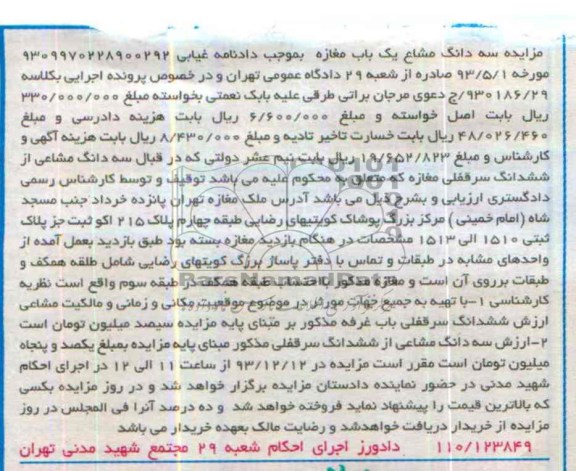 مزایده سه دانگ مشاع یک باب مغازه بموجب دادنامه غیابی ۹۳۰۹۹۷۰۲۲۸۹۰۰۲۹۲
مورخه ۹۳/۵/۱ صادره از شعبه ۲۹ دادگاه عمومی تهران و در خصوص پرونده اجرایی بکلاسه
۹۳۰۱۸۶/۲۹/ج دعوی مرجان براتی طرقی علیه بابک نعمتی بخواسته مبلغ ۳۳۰/۰۰۰/۰۰۰
ریال بابت اصل خواسته و مبلغ ۶/۶۰۰/۰۰۰ ریال بابت هزینه دادرسی و مبلغ
۴۸/۰۲۶/۴۶۰ ریال بابت خسارت تاخیر تادیه و مبلغ ۸/۴۳۰/۰۰۰ ریال بابت هزینه آگهی و
کارشناس و مبلغ ۱۹/۶۵۲/۸۲۳ ریال بابت نیم عشر دولتی که در قبال سه دانگ مشاعی از
ششدانگ سرقفلی مغازه که متعلق به محکوم علیه می باشد توقیف و توسط کارشناس رسمی
دادگستری ارزیابی و بشرح ذیل می باشد آدرس ملک مغازه تهران پانزده خرداد جنب مسجد
شاه (امام خمینی) مرکز بزرگ پوشاک کویتیهای رضایی طبقه چهارم پلاک ۲۱۵ اکو ثبت جز پلاک
ثبتی ۱۵۱۰ الی ۱۵۱۳ مشخصات در هنگام بازدید مغازه بسته بود طبق بازدید بعمل آمده از
واحدهای مشابه در طبقات و تماس با دفتر پاساژ بزرگ کویتیهای رضایی شامل طلقه همکف و
طبقات برروی آن است و مغازه مذکور با احتساب طبقه همکف در طبقه سوم واقع است نظریه
کارشناسی ۱-با تهیه به جمیع جهات موثر در موضوع موقعیت مکانی و زمانی و مالکیت مشاعی
ارزش ششدانگ سرقفلی باب غرفه مذکور بر مبنای پایه مزایده سیصد میلیون تومان است
۲-ارزش سه دانگ مشاعی از ششدانگ سرقفلی مذکور مبنای پایه مزایده بمبلغ یکصد و پنجاه
میلیون تومان است مقرر است مزایده در ۹۳/۱۲/۱۲ از ساعت ۱۱ الی ۱۲ در اجرای احکام
شهید مدنی در حضور نماینده دادستان مزایده برگزار خواهد شد و در روز مزایده بکسی
که بالاترین قیمت را پیشنهاد نماید فروخته خواهد شد و ده درصد آنرا فی المجلس در روز
مزایده از خریدار دریافت خواهدشد و رضایت مالک بعهده خریدار می باشد
۱۱۰/۱۲۳۸۴۹ دادورز اجرای احکام شعبه ۲۹ مجتمع شهید مدنی تهران